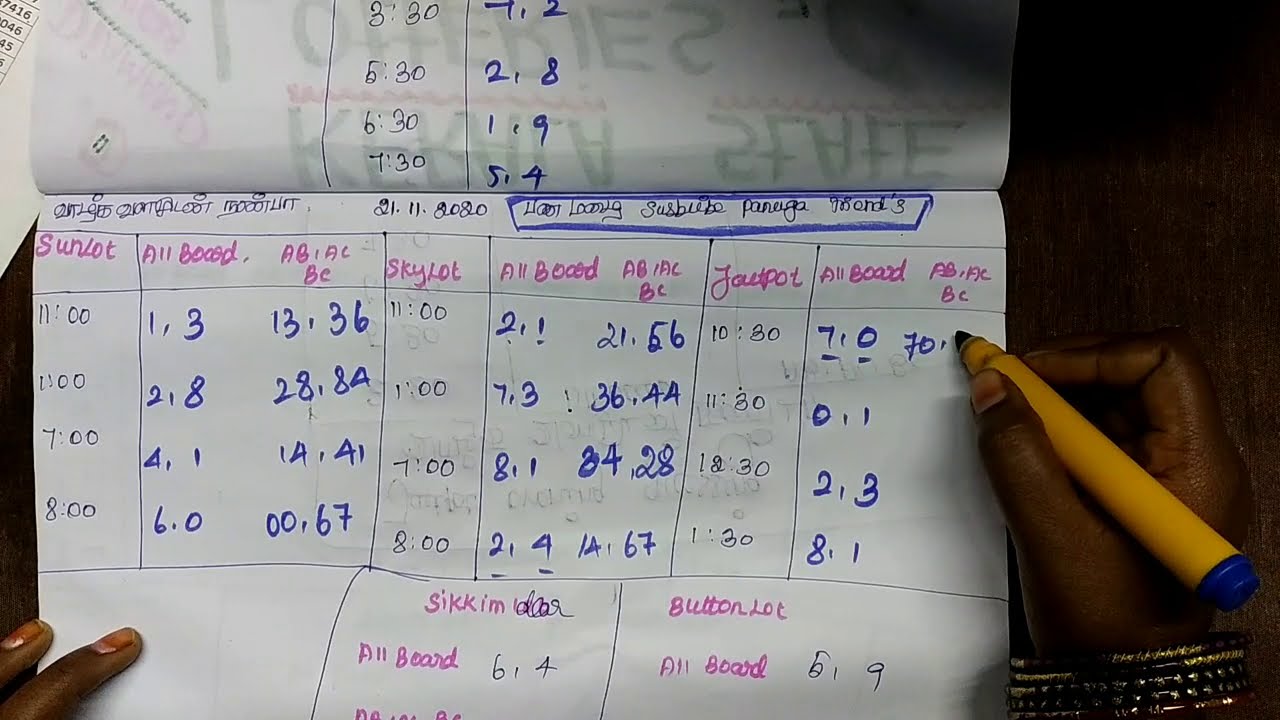 37416
0046
45
3:30 7, 2
5:30 2, 8
6:30 1, 9
7:30 5, 4
வாழ்க வளமுடன் நண்பா. 21.11.2020 பண மழை Susbribe Panunga Friend's
Sunlot All Board. AB, AC BC Skylot All Board AB, AC BC Jackpot All Board AB, AC BC
11:00 1, 3 13, 36 11:00 2, 1 21, 56 10:30 7, 0 70,
1:00 2, 8 28, 84 1:00 7, 3 36, 44 11:30 0, 1
7:00 4, 1 14, 41 7:00 8, 1 84, 28 12:30 2, 3
8:00 6, 0 00, 67 8:00 2, 4 14, 67 1:30 8, 1
Sikkim dear Buttonlot
All Board 6, 4 All Board 5, 9